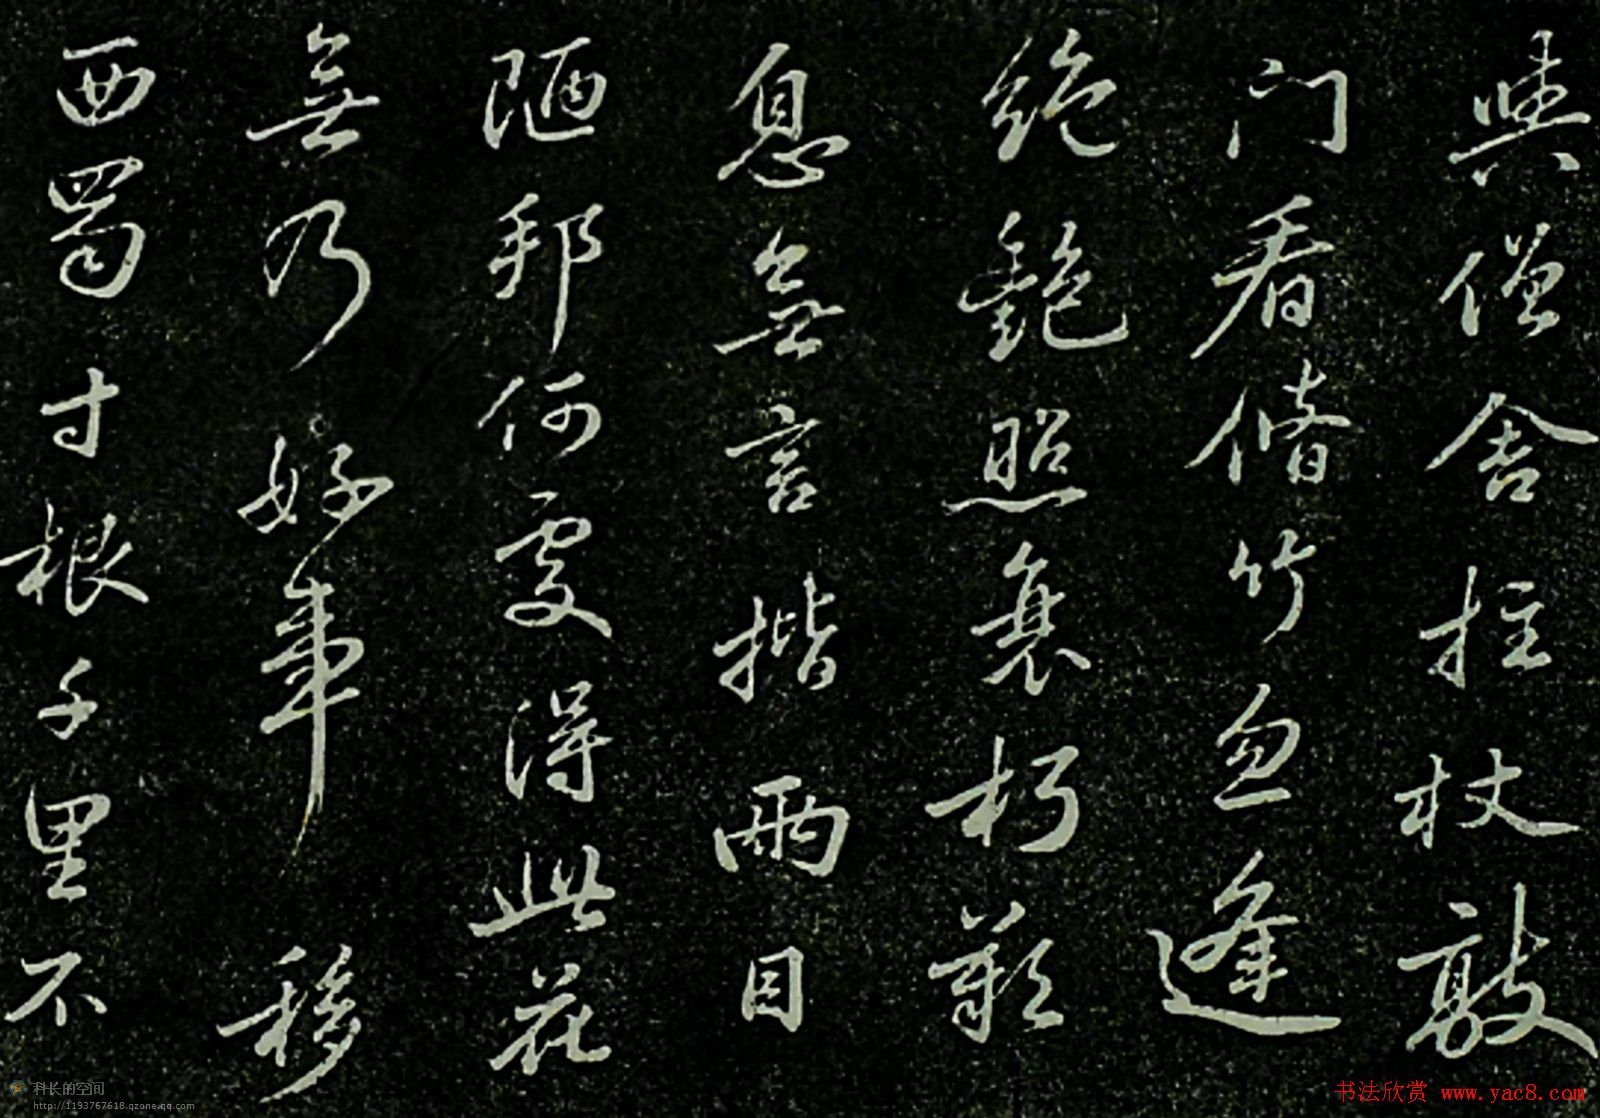 與僧舍拄杖敲
门看脩竹忽逢
绝艷照衰朽歎
息無言揩兩目
陋邦何處得此花
無乃好事移
西蜀寸根千里不
科长的空间
http://1193767618.qzone.qq.com
书法欣赏 www.yac8.com